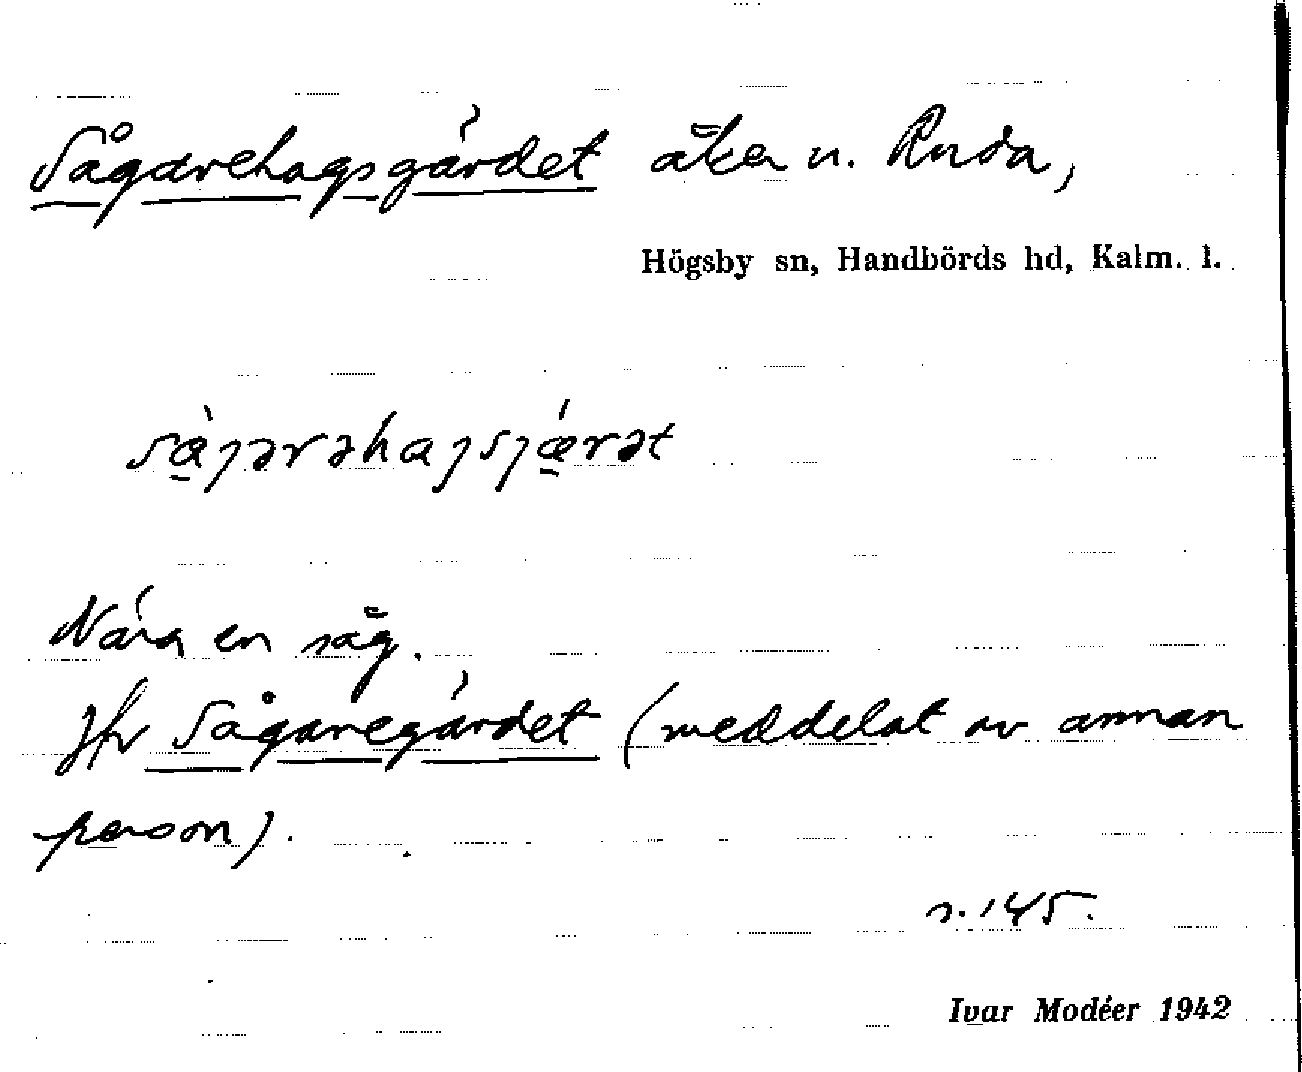 Sågarehagsgärdet åker n. Ruda,
Högsby sn, Handbörds hd, Kalm. l.
Nära en såg.
Jfr Sågaregärdet (meddelat av annan
person).
s. 145.
Ivar Modéer 1942